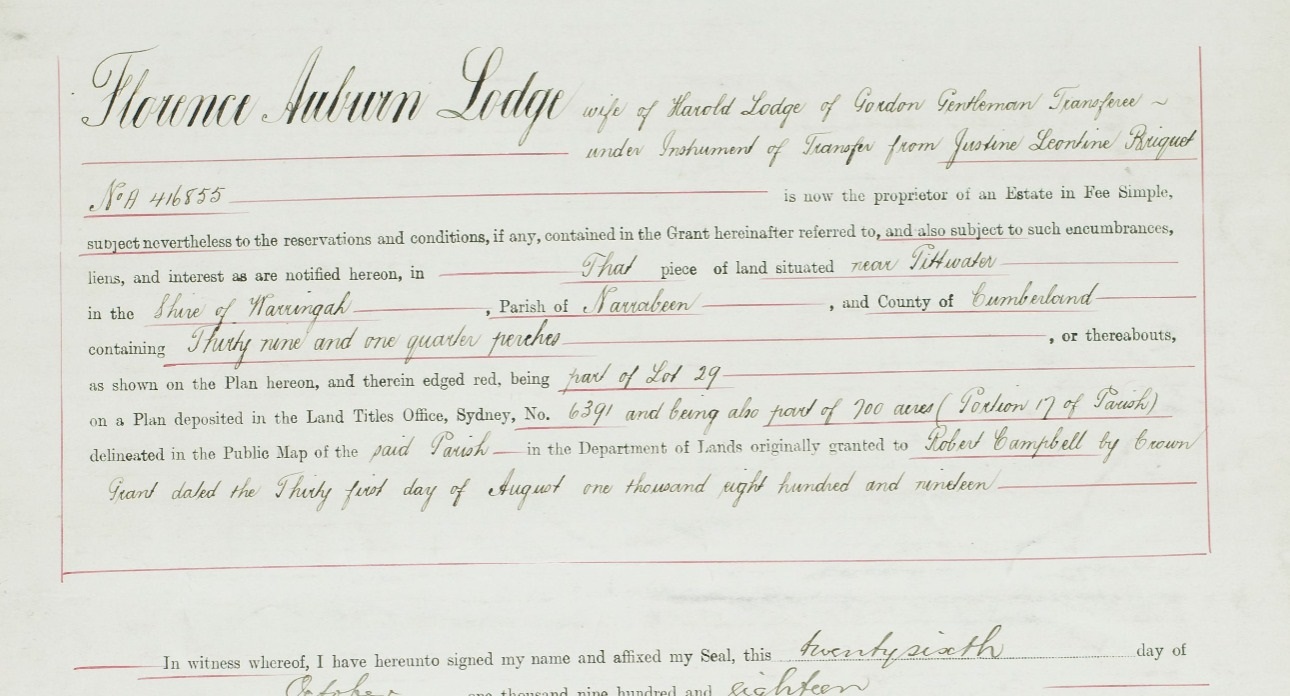 Florence Auburn Lodge wife of Harold Lodge of Gordon Gentleman Transferee ~
under Instrument of Transfer from Justine Leontine Briquet
No A 416855 is now the proprietor of an Estate in Fee Simple,
subject nevertheless to the reservations and conditions, if any, contained in the Grant hereinafter referred to, and also subject to such encumbrances,
liens, and interest as are notified hereon, in That piece of land situated near Pittwater
in the Shire of Warringah, Parish of Narrabeen, and County of Cumberland
containing Thirty nine and one quarter perches, or thereabouts,
as shown on the Plan hereon, and therein edged red, being part of Lot 29
on a Plan deposited in the Land Titles Office, Sydney, No. 6391 and being also part of 700 acres (Portion 17 of Parish)
delineated in the Public Map of the said Parish in the Department of Lands originally granted to Robert Campbell by Crown
Grant dated the Thirty first day of August one thousand eight hundred and nineteen
In witness whereof, I have hereunto signed my name and affixed my Seal, this twentysixth day of
October one thousand nine hundred and eighteen